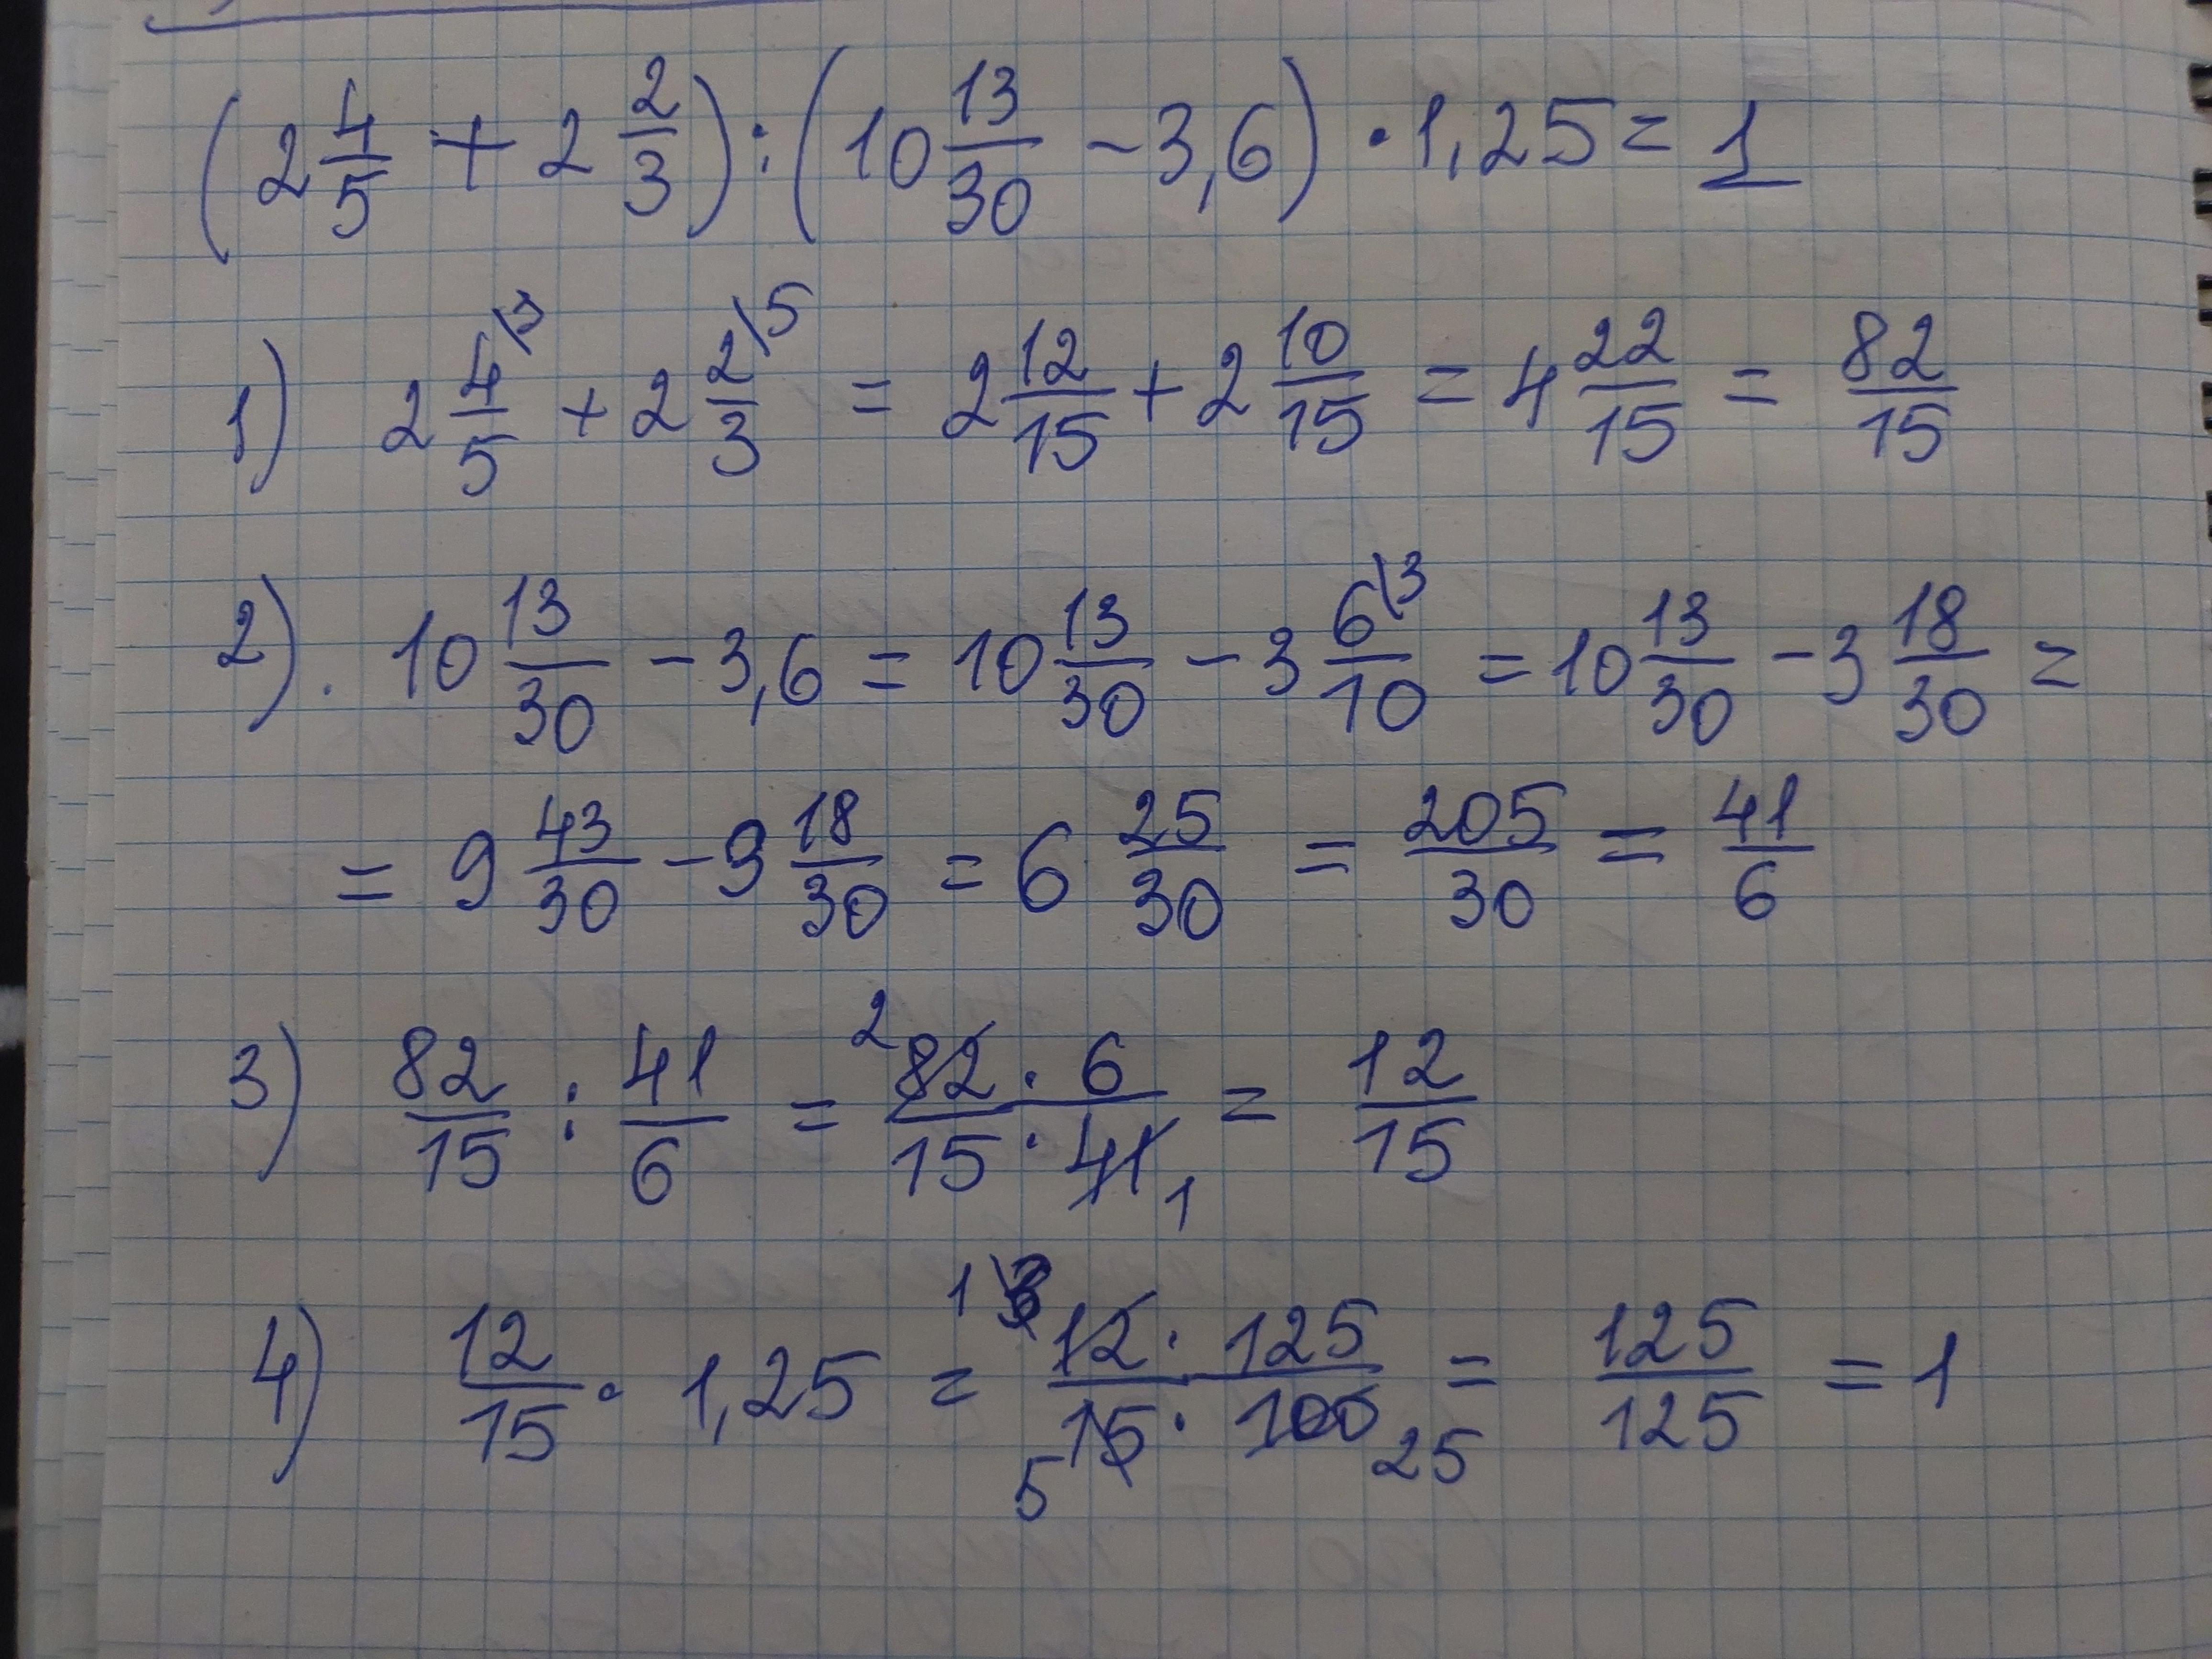 (2 4/5 + 2 2/3) : (10 13/30 - 3,6) · 1,25 = 1
1) 2 4\3/5 + 2 2\5/3 = 2 12/15 + 2 10/15 = 4 22/15 = 82/15
2). 10 13/30 - 3,6 = 10 13/30 - 3 6\3/10 = 10 13/30 - 3 18/30 =
= 9 43/30 - 3 18/30 = 6 25/30 = 205/30 = 41/6
3) 82/15 : 41/6 = 2 82 · 6 / 15 · 41 1 = 12/15
4) 12/15 · 1,25 = 1 3 12 · 125 / 5 15 · 100 25 = 125/125 = 1